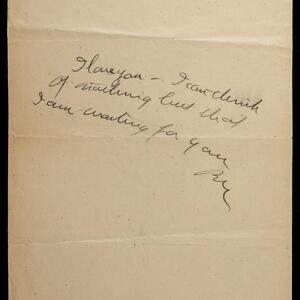 I love you – I can think
of nothing but that
I am waiting for you